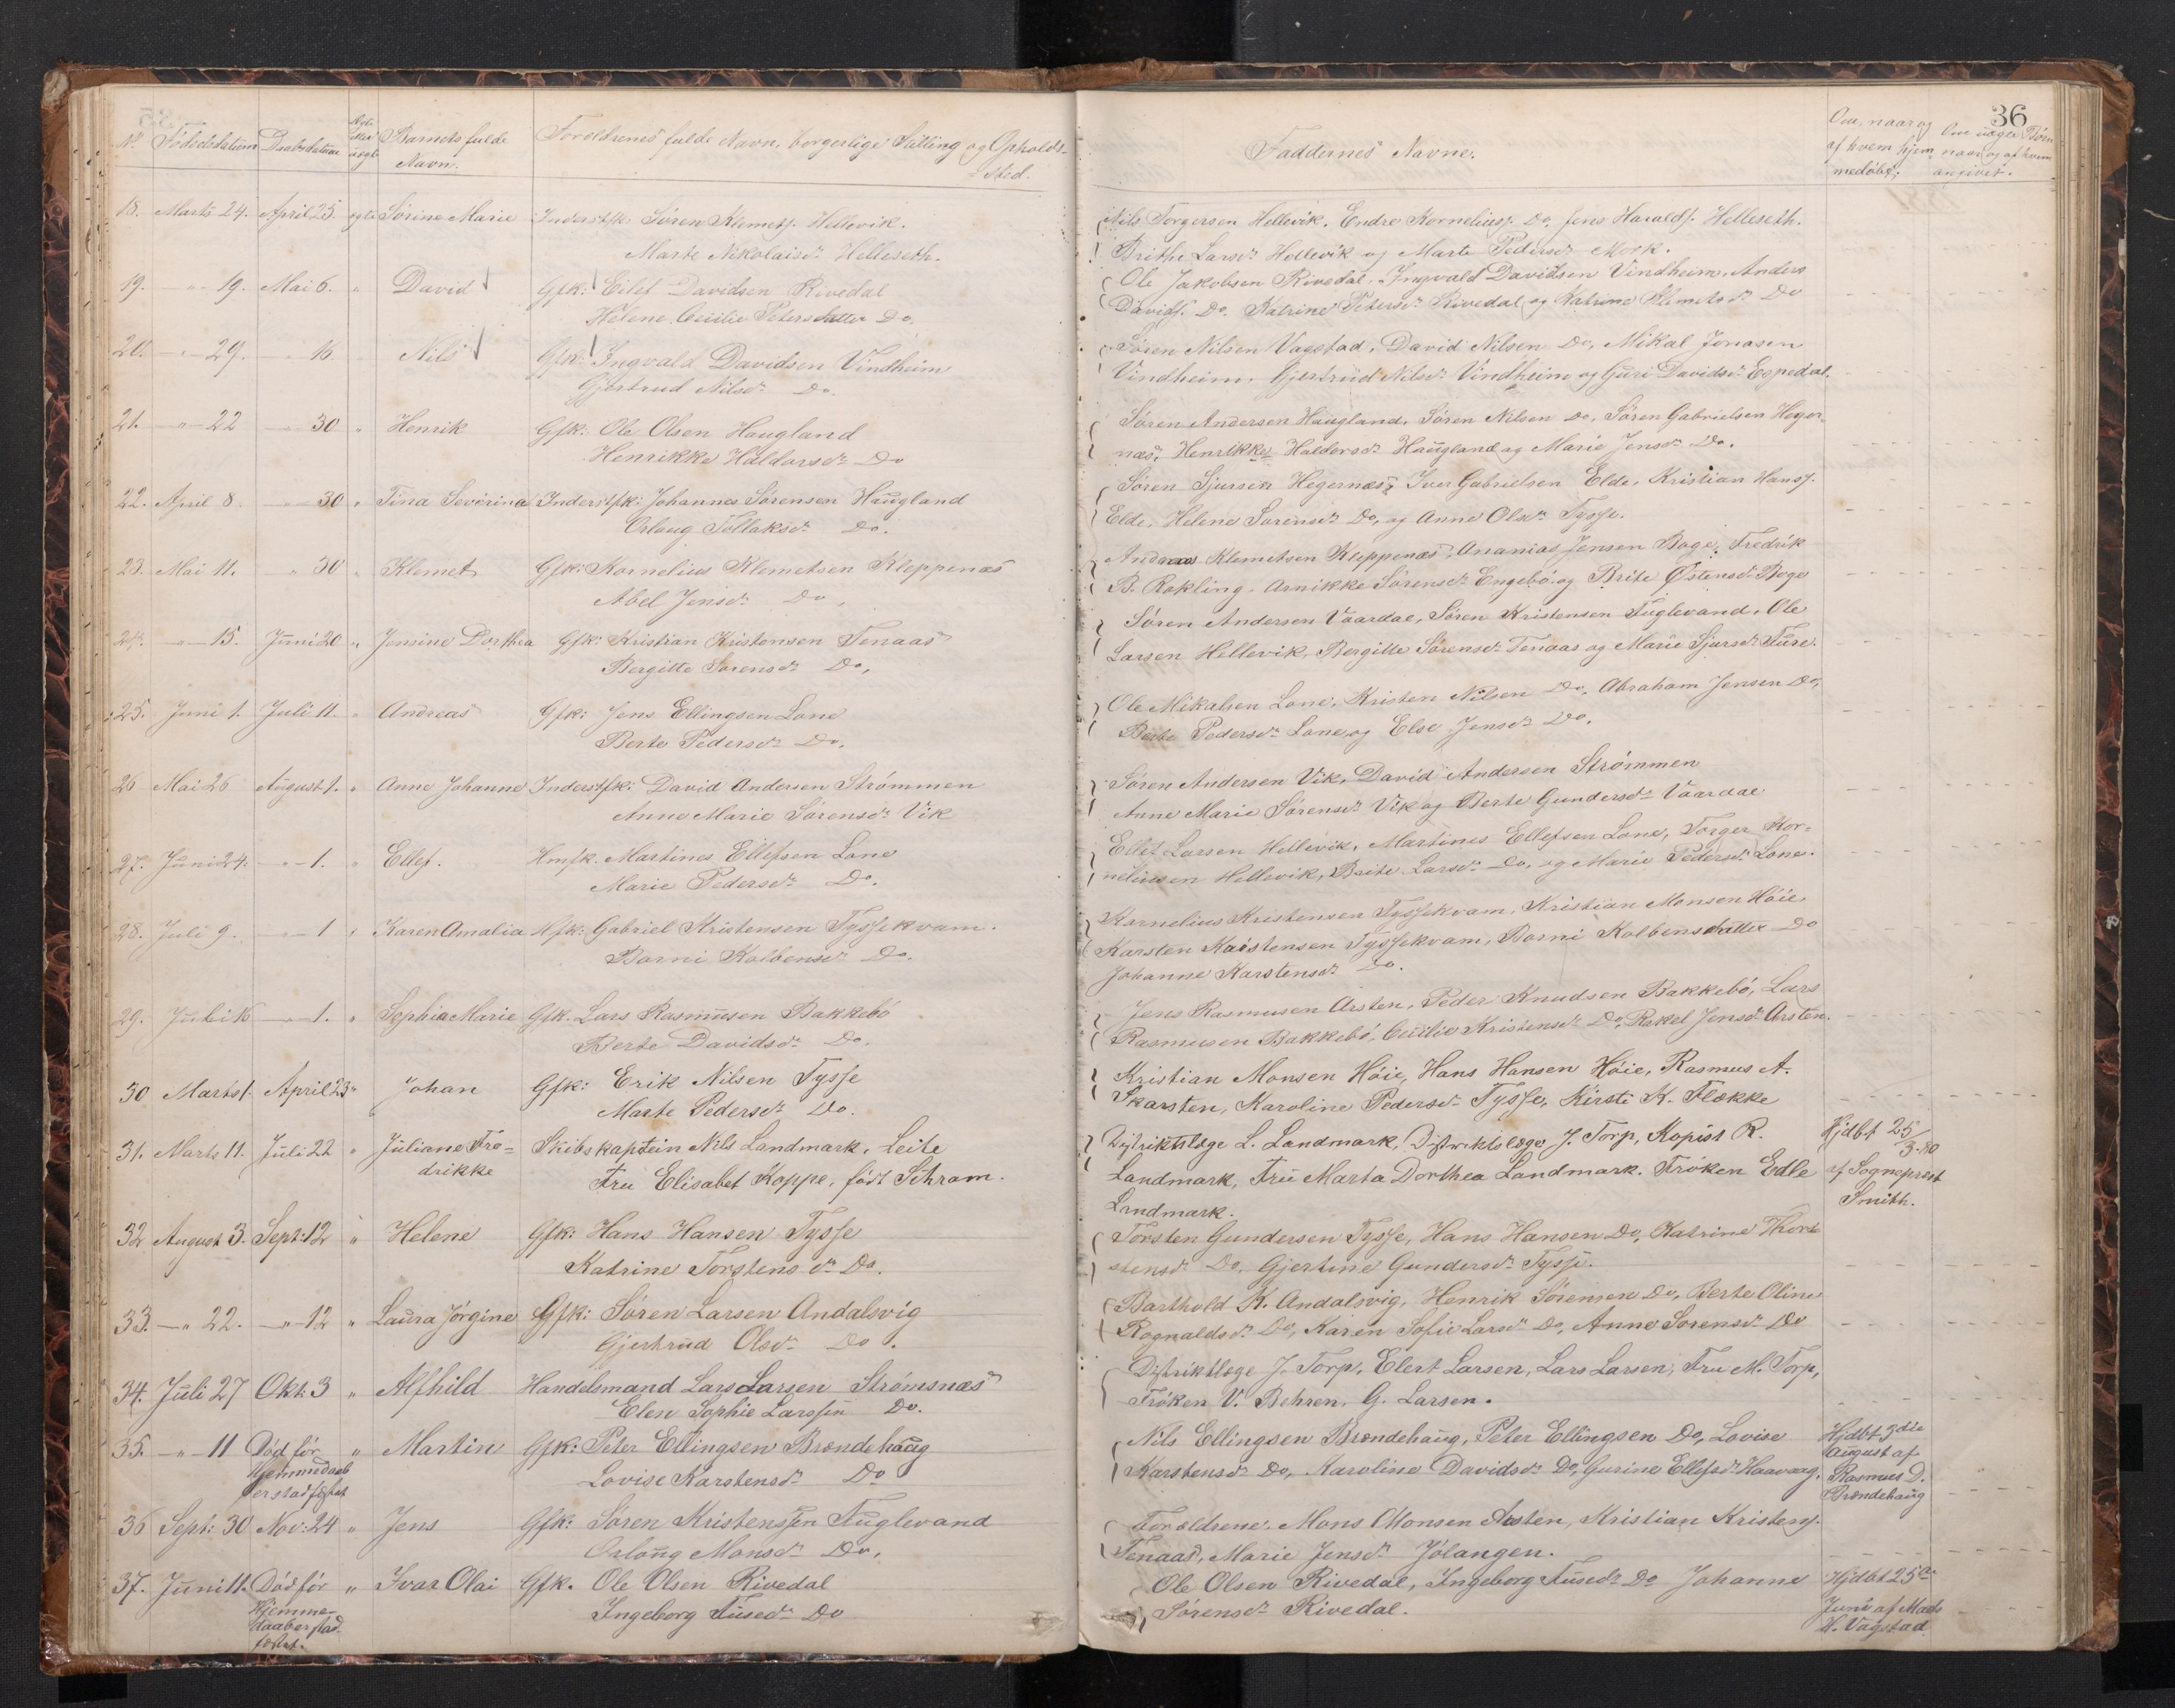 36
No Fødselsdatum Daabsdatum Ægte eller uægte Barnets fulde Navn. Forældrenes fulde Navn, borgerlige Stilling og Opholdssted.
18. Marts 24. April 25. ægte Sørine Marie Inderstfk Søren Klemets. Hellevik.
Marte Nikolaisdr Helleseth.
19. -"- 19. Mai 6. " David Gfk: Eilef Davidsen Rivedal
Helene Cecilie Petersdatter Do.
20. -"- 29. -"- 16. Nils Gfk: Ingvald Davidsen Vindheim
Gjertrud Nilsdr Do.
21. -"- 22 -"- 30 " Henrik Gfk: Ole Olsen Haugland
Henrikke Haldorsdr Do
22. April 8 -"- 30 " Tina Severina Inderstfk: Johannes Sørensen Haugland
Orlaug Tollaksdr Do.
23. Mai 11. " 30 " Klemet Gfk: Kornelius Klemetsen Kleppenæs
Abel Jensdr Do.
24. -"- 15. Juni 20 " Jensine Dorthea Gfk: Kristian Kristensen Tenaas
Bergitte Sørensdr Do,
25. Juni 1. Juli 11. " Andreas Gfk: Jens Ellingsen Lone
Berte Pedersdr Do.
26 Mai 26 August 1. " Anne Johanne Inderstfk: David Andersen Strømmen
Anne Marie Sørensdr Vik
27. Juni 24. -"- 1. " Ellef. Hmfk. Martines Ellefsen Lone
Marie Pedersdr Do.
28. Juli 9. -"- 1 " Karen Amalia Hfk: Gabriel Kristensen Tyssekvam.
Borni Kolbensdr Do.
29. Juli 16 -"- 1. " Sophia Marie Gfk. Lars Rasmusen Bakkebö
Berte Davidsdr Do.
30 Marts 1. April 23 " Johan Gfk: Erik Nilsen Tysse
Marte Pedersdr Do.
31. Marts 11. Juli 22 " Juliane Fredrikke Skibskaptein Nils Landmark, Leite
Fru Elisabet Koppe, født Schram.
32 August 3. Sept: 12 " Helene Gfk: Hans Hansen Tysse
Katrine Torstensdr Do.
33. -"- 22. -"- 12 " Laura Jörgine Gfk: Søren Larsen Andalsvig
Gjertrud Olsdr Do.
34. Juli 27 Okt: 3 " Alfhild Handelsmand Lars Larsen Strømsnæs
Elen Sophie Larssen Do.
35. -"- 11 Död før Hjemmedaab er stadfæstet " Martin Gfk: Peter Ellingsen Brændehaug
Lovise Karstensdr Do
36 Sept: 30 Nov: 24 " Jens Gfk: Søren Kristensen Fuglevand
Orlaug Monsdr Do.
37. Juni 11. Död før Hjemmedaab er stadfæstet. " Ivar Olai Gfk. Ole Olsen Rivedal
Ingeborg Tusedr Do
Faddernes Navne. Om, naar og af hvem hjemmedøbt; Om uægte Børn naar og af hvem angivet.
Nils Torgersen Hellevik. Endre Korneliuss. Do, Jens Haralds. Helleseth.
Brithe Larsdr Hellevik og Marte Pedersdr Mork.
Ole Jakobsen Rivedal, Ingvald Davidsen Vindheim, Anders
Davids. Do. Katrine Petersdr Rivedal og Katrine Klemetsdr Do
Søren Nilsen Vagstad, David Nilsen Do, Mikal Jonasen
Vindheim, Gjertrud Nilsdr Vindheim og Guri Davidsdr Espedal.
Søren Andersen Haugland, Søren Nilsen Do, Søren Gabrielsen Heger-
næs, Henrikke Haldorsdr Haugland og Marie Jensdr Do.
Søren Sjursen Hegernæs, Iver Gabrielsen Elde, Kristian Hanss.
Elde, Helene Sørensdr Do, og Anne Olsdr Tysse.
Andreas Klemetsen Kleppenæs, Ananias Jensen Boge, Fredrik
B. Rokling, Arnikke Sørensdr Engebö og Brite Østensdr Boge
Søren Andersen Vaardal, Søren Kristensen Fuglevand, Ole
Larsen Hellevik, Bergitte Sørensdr Tenaas og Marie Sjursdr Fure.
Ole Mikalsen Lone, Kristen Nilsen Do, Abraham Jensen Do,
Berte Pedersdr Lone og Else Jensdr Do.
Søren Andersen Vik, David Andersen Strømmen
Anne Marie Sørensdr Vik og Berte Gundersdr Vaardal
Ellef Larsen Hellevik, Martines Ellefsen Lone, Torger Kor-
neliusen Hellevik, Brite Larsdr Do, og Marie Pedersdr Lone.
Kornelius Kristensen Tyssekvam, Kristian Monsen Höie,
Karsten Karstensen Tyssekvam, Borni Kolbensdatter Do
Johanne Karstensdr Do.
Jens Rasmusen Arsten, Peder Knudsen Bakkebö, Lars
Rasmusen Bakkebö, Cecilie Kristensdr Do, Rakel Jensdr Arsten.
Kristian Monsen Höie, Hans Hansen Höie, Rasmus A.
Skarsten, Karoline Pedersdr Tysse, Kirsti K. Flække
Distriktslæge L. Landmark, Distriktslæge J. Torp, Kopist R. Hjdbt 25/3-80
Landmark, Fru Marta Dorthea Landmark. Frøken Edle af Sogneprest
Landmark. Smith.
Torsten Gundersen Tysse, Hans Hansen Do, Katrine Thor-
stensdr Do, Gjertine Gundersdr Tysse.
Barthold K. Andalsvig, Henrik Sörensen Do, Berte Oline
Rognaldsdr Do, Karen Sofie Larsdr Do, Anne Sørensdr Do
Distriktlæge J. Torp, Elert Larsen, Lars Larsen, Fru M. Torp,
Frøken V. Behren, G. Larsen.
Nils Ellingsen Brændehaug, Peter Ellingsen Do, Lovise Hjdbt 3die August af
Karstensdr Do, Karoline Davidsdr Do, Gurine Ellefsdr Haavarg. Rasmus D. Brændehaug
Forældrene. Mons Monsen Arsten, Kristian Kristens.
Tenaas, Marie Jensdr Jölangen.
Ole Olsen Rivedal, Ingeborg Tusedr Do Johanne Hjdbt 25de
Sörensdr Rivedal. Juni af Mads H. Vagstad